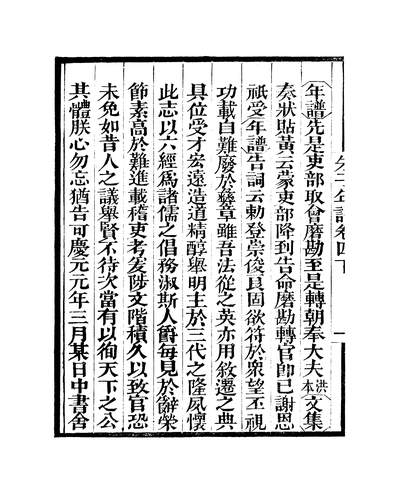 朱子年譜卷四下
一
年譜先是吏部取會磨勘至是轉朝奉大夫洪本文集
奏狀貼黃云蒙吏部降到告命磨勘轉官卽已謝恩
祇受年譜告詞云勅登崇俊良固欲符於衆望丕視
功載自難廢於彝章雖吾法從之英亦用敘遷之典
具位受才宏遠造道精醇舉明主於三代之隆夙懷
此志以六經爲諸儒之倡務淑斯人爵每見於辭榮
節素高於難進載稽吏考爰陟文階積久以致官恐
未免如昔人之議舉賢不待次當有以徇天下之公
其體朕心勿忘猶告可慶元元年三月某日中書舍